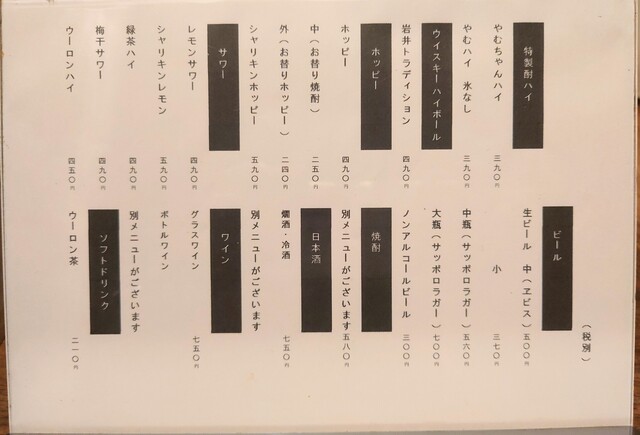 特製酎ハイ
やむちゃんハイ 三九〇円
やむハイ 氷なし 三九〇円
ウイスキーハイボール
岩井トラディション 四九〇円
ホッピー
ホッピー 四九〇円
中(お替り焼酎) 二五〇円
外(お替りホッピー) 二四〇円
シャリキンホッピー 五九〇円
サワー
レモンサワー 四九〇円
シャリキンレモン 五九〇円
緑茶ハイ 四九〇円
梅干サワー 四九〇円
ウーロンハイ 四五〇円
(税別)
ビール
生ビール 中(ヱビス) 五〇〇円
小 三七〇円
中瓶(サッポロラガー) 五六〇円
大瓶(サッポロラガー) 七〇〇円
ノンアルコールビール 三〇〇円
焼酎
別メニューがございます 五八〇円
日本酒
燗酒・冷酒 七五〇円
別メニューがございます
ワイン
グラスワイン 七五〇円
ボトルワイン
別メニューがございます
ソフトドリンク
ウーロン茶 二一〇円